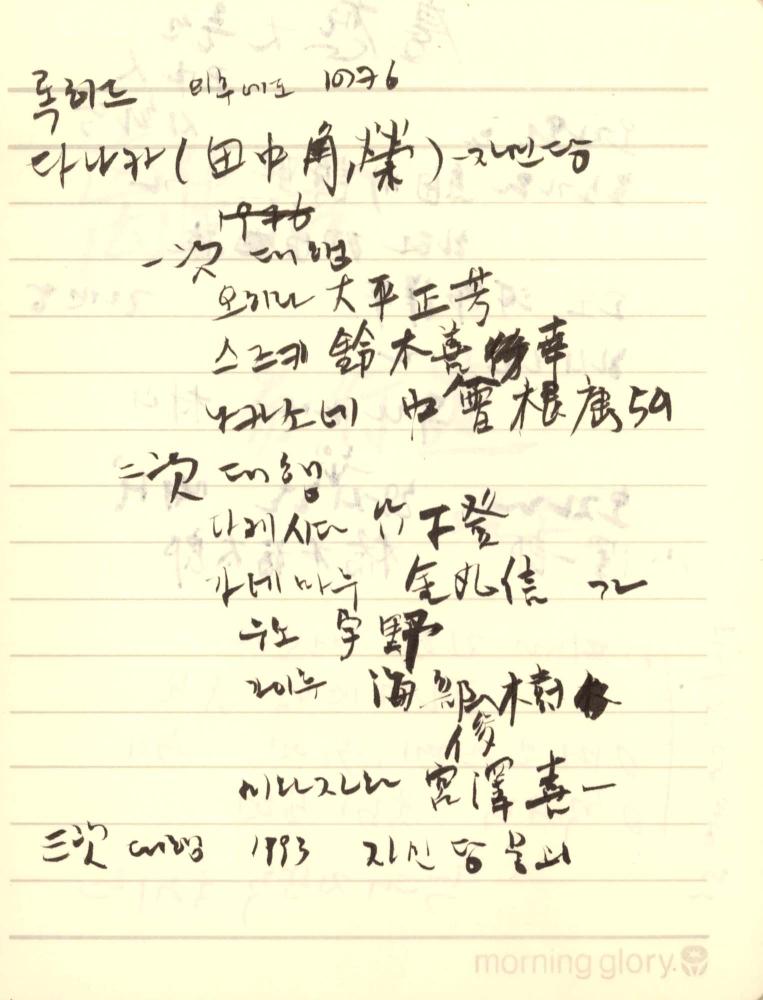 록히드 미국에도 1976
다나카(田中角,榮)-자민당
1976
一次 대형
오히라 大平正芳
스즈키 鈴木善幸
나카소네 中曾根康 59
二次 대형
다케시다 竹下登
가네마루 金丸信
우노 宇野
가이후 海部俊樹
미야자와 宮澤喜一
三次 대형 1993 자민당 붕괴
morning glory.